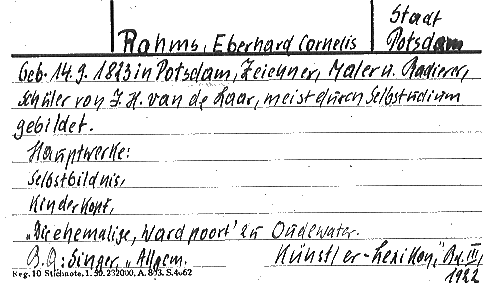 Stadt
Rahms, Eberhard Cornelis Potsdam
Geb. 14.9.1823 in Potsdam, Zeichner, Maler u. Radierer,
Schüler von J. H. van de Laar, meist durch Selbstudium
gebildet.
Hauptwerke:
Selbstbildnis,
Kinderkopf,
„Die ehemalige, Wardpoort' zu Oudewater.
: Singer, „Allgem. Künstler-Lexikon," Bd. III,
1922
10 232000, A. S.